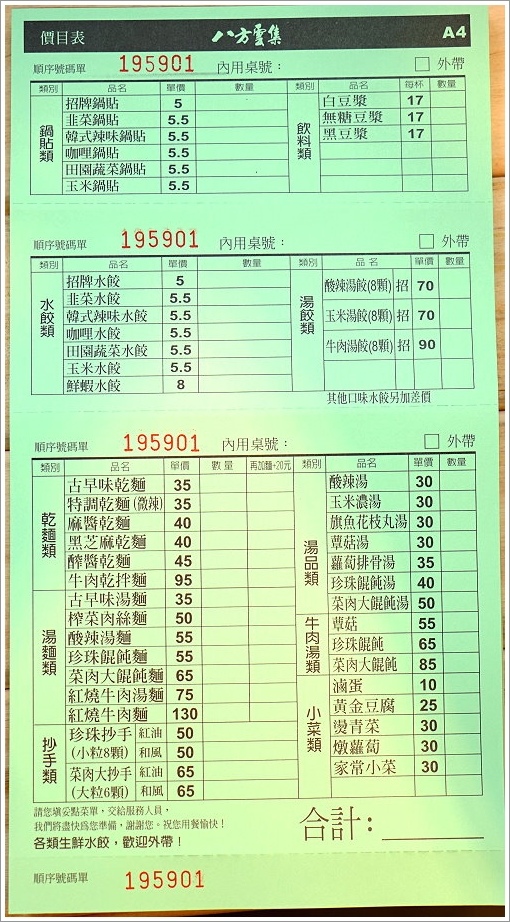 價目表 八方雲集 A4
順序號碼單 195901 內用桌號： □ 外帶
類別 品名 單價 數量 類別 品名 每杯 數量
鍋貼類
招牌鍋貼 5
韭菜鍋貼 5.5
韓式辣味鍋貼 5.5
咖哩鍋貼 5.5
田園蔬菜鍋貼 5.5
玉米鍋貼 5.5
飲料類
白豆漿 17
無糖豆漿 17
黑豆漿 17
順序號碼單 195901 內用桌號： □ 外帶
類別 品名 單價 數量 類別 品名 單價 數量
水餃類
招牌水餃 5
韭菜水餃 5.5
韓式辣味水餃 5.5
咖哩水餃 5.5
田園蔬菜水餃 5.5
玉米水餃 5.5
鮮蝦水餃 8
湯餃類
酸辣湯餃(8顆) 招 70
玉米湯餃(8顆) 招 70
牛肉湯餃(8顆) 招 90
其他口味水餃另加差價
順序號碼單 195901 內用桌號： □ 外帶
類別 品名 單價 數量 再加麵+20元 類別 品名 單價 數量
乾麵類
古早味乾麵 35
特調乾麵(微辣) 35
麻醬乾麵 40
黑芝麻乾麵 40
醡醬乾麵 45
牛肉乾拌麵 95
湯麵類
古早味湯麵 35
榨菜肉絲麵 50
酸辣湯麵 55
珍珠餛飩麵 55
菜肉大餛飩麵 65
紅燒牛肉湯麵 75
紅燒牛肉麵 130
抄手類
珍珠抄手 紅油 50
(小粒8顆) 和風 50
菜肉大抄手 紅油 65
(大粒6顆) 和風 65
湯品類
酸辣湯 30
玉米濃湯 30
旗魚花枝丸湯 30
蕈菇湯 30
蘿蔔排骨湯 35
珍珠餛飩湯 40
菜肉大餛飩湯 50
牛肉湯類
蕈菇 55
珍珠餛飩 65
菜肉大餛飩 85
小菜類
滷蛋 10
黃金豆腐 25
燙青菜 30
燉蘿蔔 30
家常小菜 30
請您填妥點菜單，交給服務人員，
我們將盡快為您準備，謝謝您。祝您用餐愉快！
各類生鮮水餃，歡迎外帶！
合計：
順序號碼單 195901